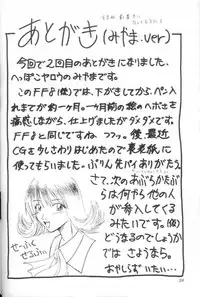 あとがき(みやま.ver)
今回で2回目のあとがきになりました、
へっぽこヤロウのみやまです。
このFF8(仮)では、下がきしてから、ペン
入れまでが約一ヶ月。一ヶ月前の絵のヘボさを
痛感しながら、仕上げたがダメダメです。
FF8と同じですね フフッ。僕、最近
CGを少しさわりはじめたので裏表紙に
使ってもらいました。ぶりん先パイありがとう
さて、次のあぶらかたぶら
は何やら他の人が
参入してくる
みたいです。(仮)
どうなるのでしょうか
では さようなら。
おやしらず いたい…
せーふく
せるふぃ